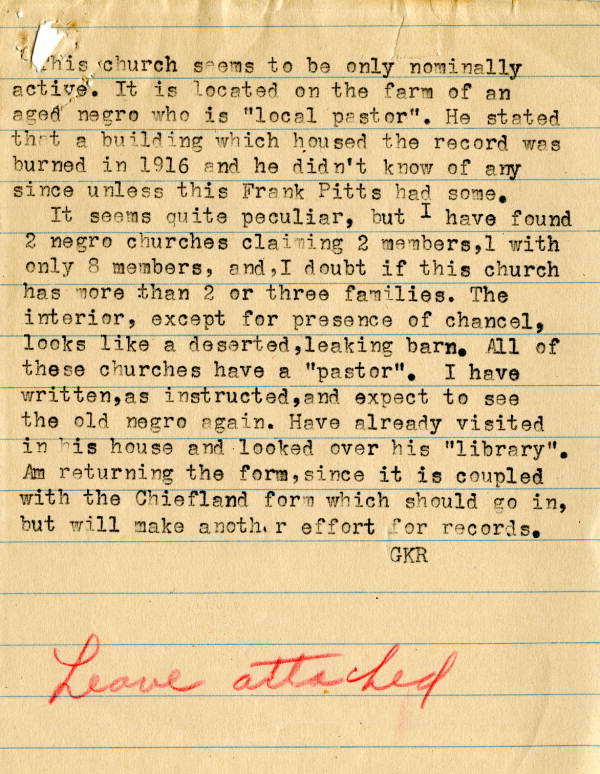 This church seems to be only nominally
active. It is located on the farm of an
aged negro who is "local pastor". He stated
that a building which housed the record was
burned in 1916 and he didn't know of any
since unless this Frank Pitts had some.
It seems quite peculiar, but I have found
2 negro churches claiming 2 members,1 with
only 8 members, and,I doubt if this church
has more than 2 or three families. The
interior, except for presence of chancel,
looks like a deserted,leaking barn. All of
these churches have a "pastor". I have
written,as instructed,and expect to see
the old negro again. Have already visited
in his house and looked over his "library".
Am returning the form,since it is coupled
with the Chiefland form which should go in,
but will make another effort for records.
GKR
Leave attached